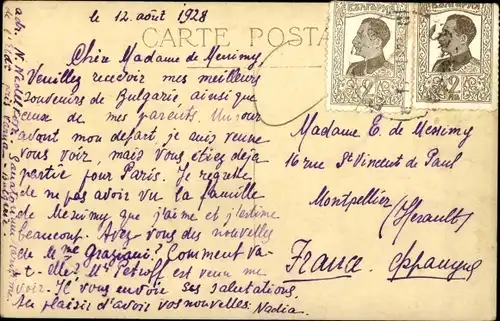 le 12 août 1928
CARTE POSTA
Chère Madame de Menimy
Veuillez recevoir mes meilleurs
souvenirs de Bulgarie, ainsi que
ceux de mes parents. Un jour
avant mon départ, je suis venue
vous voir, mais vous étiez déja
partie pour Paris. Je regrette
de ne pas avoir vu la famille
de Menimy que j'aime et j'estime
beaucoup. Avez-vous des nouvelles
de Me Graziani? Comment va-
t-elle? Mr Petroff est venu me
voir. Il vous envoie ses salutations.
Au plaisir d'avoir vos nouvelles: Nadia.
Madame E. de Menimy
16 rue St Vincent de Paul
Montpellier
(Herault)
France.
БЪЛГАРИЯ
2
2
adr. N.